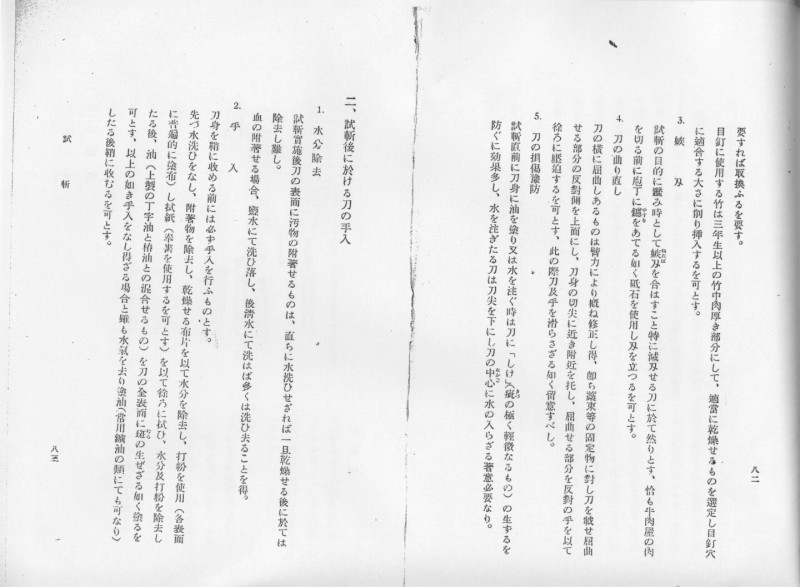 八二
要すれば取換ふるを要す。
目釘に使用する竹は三年生以上の竹中肉厚き部分にして、適當に乾燥せるものを選定し目釘穴
に適合する大さに削り挿入するを可とす。
3. 刄
試斬の目的に鑑み時として刄を合はすこと特に減刄せる刀に於て然りとす、恰も牛肉屋の肉
を切る前に庖丁に鑢をあてる如く砥石を使用し刄を立つるを可とす。
4. 刀の曲り直し
刀の橫に屈曲しあるものは臂力により概ね修正し得、卽ち藁束等の固定物に對し刀を載せ屈曲
せる部分の反對側を上面にし、刀身の切尖に近き附近を托し、屈曲せる部分を反對の手を以て
徐ろに壓迫するを可とす、此の際刀及手を滑らさざる如く留意すべし。
5. 刀の損傷豫防
試斬直前に刀身に油を塗り又は水を注ぐ時は刀に「しけ」(疵の極く輕微なるもの)の生するを
防ぐに効果多し、水を注ぎたる刀は刀尖を下にし刀の中心に水の入らざる著意必要なり。
二、試斬後に於ける刀の手入
1. 水分除去
試斬實施後刀の表面に汚物の附著せるものは、直ちに水洗ひせざれば一旦乾燥せる後に於ては
除去し難し。
血の附著せる場合、鹽水にて洗ひ落し、後淸水にて洗はば多くは洗ひ去ることを得。
2. 手入
刀身を鞘に收める前には必ず手入を行ふものとす。
先づ水洗ひをなし、附著物を除去し、乾燥せる布片を以て水分を除去し、打粉を使用(各表面
に普遍的に塗布)し拭紙(奉書を使用するを可とす)を以て徐ろに拭ひ、水分及打粉を除去し
たる後、油(上製の丁字油と椿油との混合せるもの)を刀の全表面に斑の生ぜざる如く塗るを
可とす、以上の如き手入をなし得ざる場合と雖も水氣を去り塗油(常用鑛油の類にても可なり)
したる後鞘に收むるを可とす。
試斬
八三